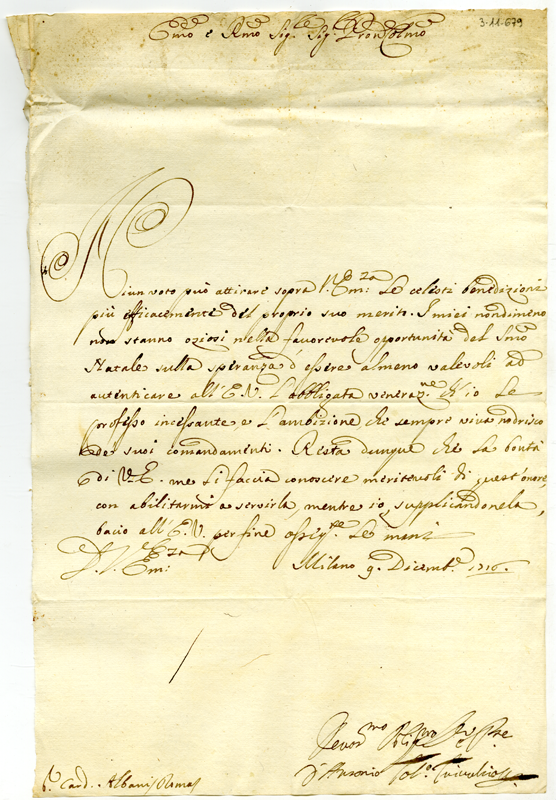 3-11-679
Emo e Rmo Sig.r Sig.r Pron Colmo
Niun voto può attirare sopra l'Em:za Le celesti benedizioni
più efficacemente del proprio suo merito. I miei nondimeno
non stanno oziosi nella favorevole opportunità del Smo
Natale sulla speranza d'essere almeno valevoli ad
autenticare all'E.V. L'obbligata veneraz.ne ch'io Le
professo incessante e L'ambizione che sempre viva nodrisco
de suoi comandamenti. Resta dunque che La bontà
di V.E. me Li faccia conoscere meritevoli di quest'onore
con abilitarmi a servirla, mentre io, supplicandonela,
bacio all'E.V. per fine osseq.te Le mani
D. V. Em:za
Milano 9. Dicemb.e 1716.
Devot.mo
D'Antonio Tolo Trivulzio
Card. Albani Roma